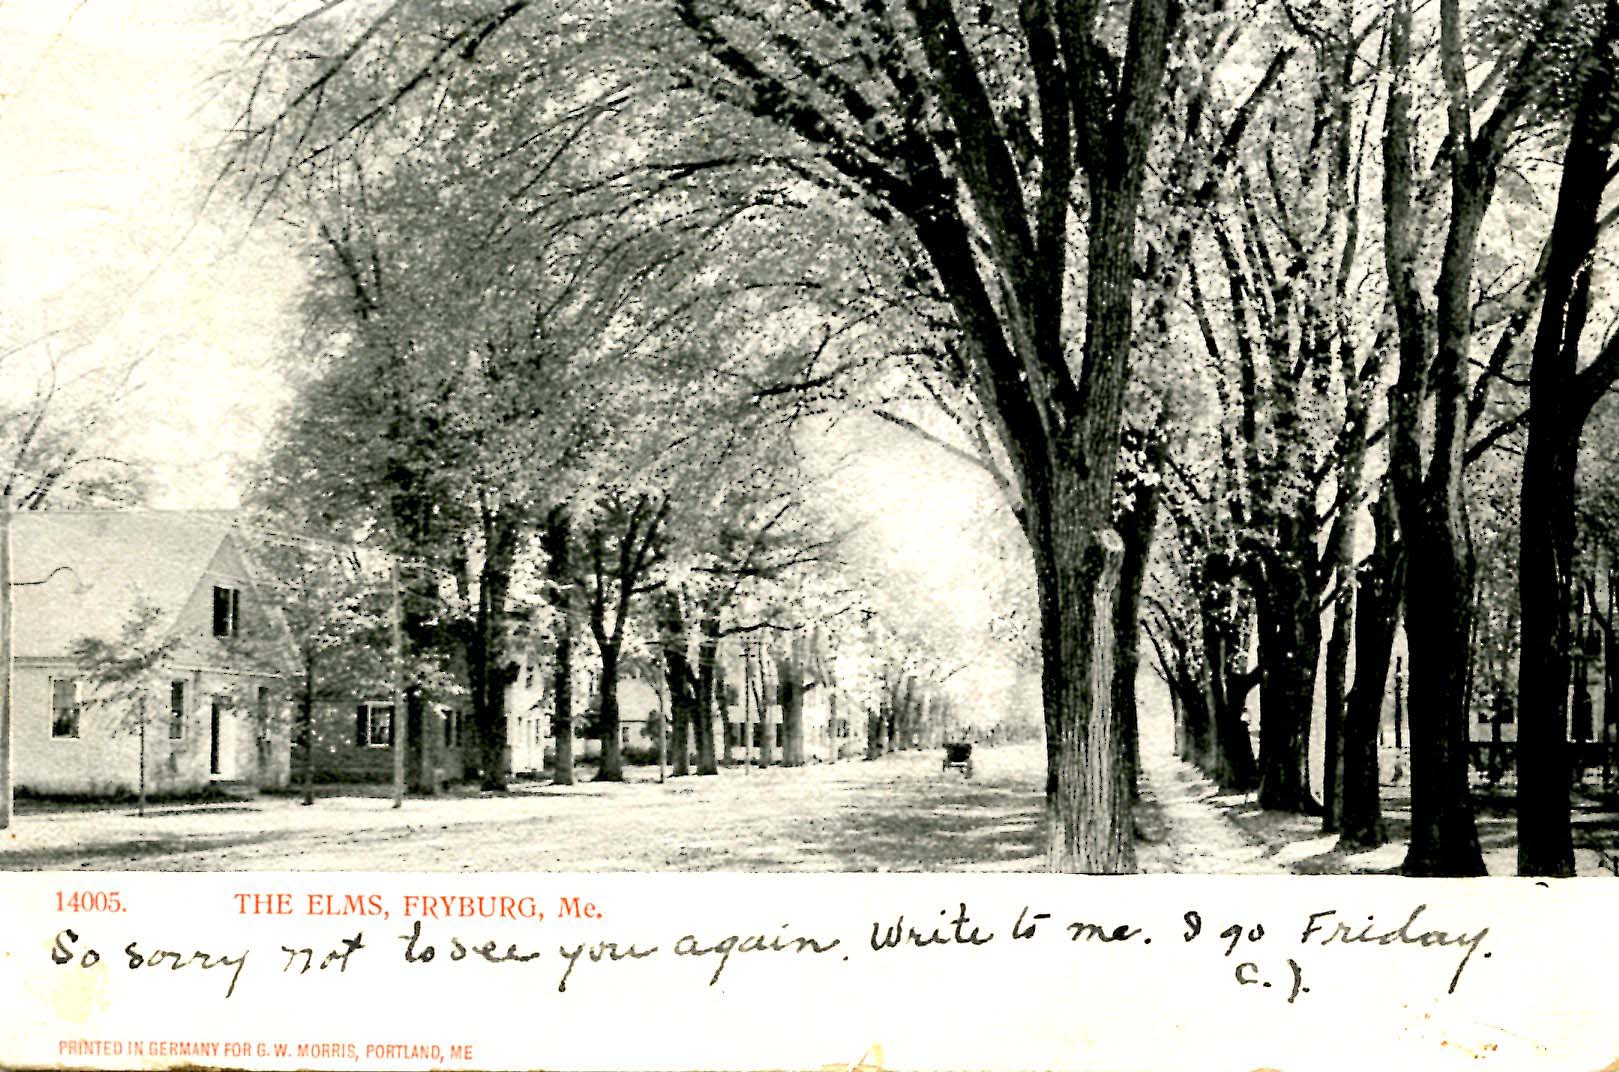 14005. THE ELMS, FRYBURG, Me.
So sorry not to see you again. Write to me. I go Friday.
C. J.
PRINTED IN GERMANY FOR G. W. MORRIS, PORTLAND, ME